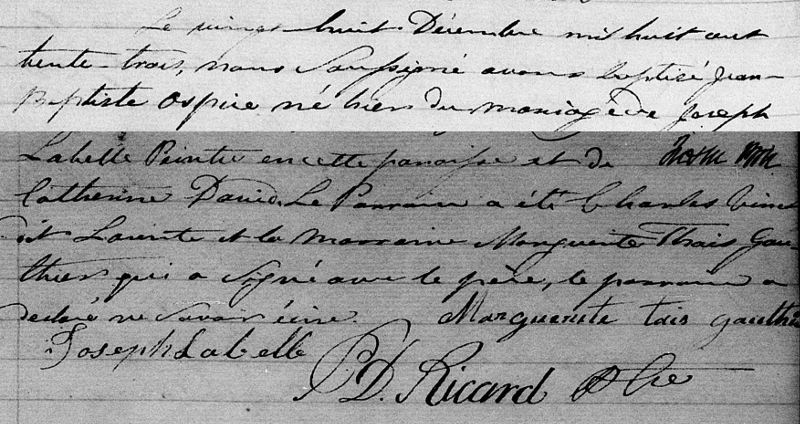 Le vingt huit Décembre mil huit cent
trente-trois, nous Soussigné avons baptisé Jean-
Baptiste Ospire né hier du mariage de Joseph
Labelle Peintre en cette paroisse et de
Catherine David. Le Parrain a été Charles
dit Lavente et la Marraine Marguerite Thais Gau-
thier qui a signé avec le père, le parrain a
declaré ne savoir écrire. Marguerite tais gauthier
Joseph Labelle
P. D. Ricard Ptre